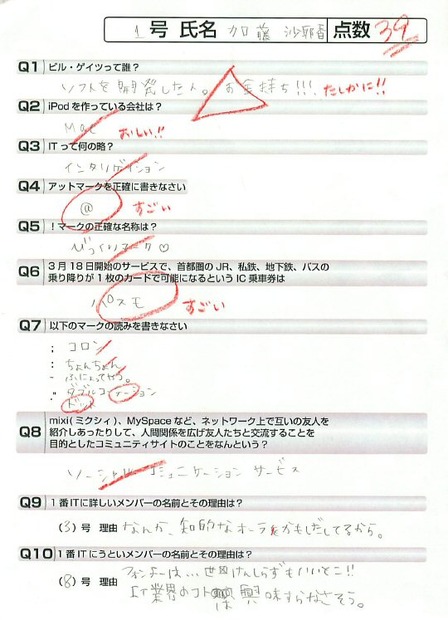 1 号 氏名 加藤 沙耶香 点数 39
Q1 ビル・ゲイツって誰？
ソフトを開発した人。お金持ち!!! たしかに!!
Q2 iPodを作っている会社は？
Mac おしい!!
Q3 ITって何の略？
インタリゲイション
Q4 アットマークを正確に書きなさい
@ すごい
Q5 ！マークの正確な名称は？
びっくりマーク♡
Q6 3月18日開始のサービスで、首都圏のJR、私鉄、地下鉄、バスの
乗り降りが1枚のカードで可能になるというIC乗車券は
パスモ すごい
Q7 以下のマークの読みを書きなさい
; コロン
: ちょんちょん
-
" ダブルコーテーション
. ドット
Q8 mixi(ミクシィ)、MySpaceなど、ネットワーク上で互いの友人を
紹介しあったりして、人間関係を広げ友人たちと交流することを
目的としたコミュニティサイトのことをなんという？
ソーシャルコミュニケーション サービス
Q9 1番ITに詳しいメンバーの名前とその理由は？
(3)号 理由 なんか、知的なオーラをかもしだしてるから。
Q10 1番ITにうといメンバーの名前とその理由は？
(8)号 理由 は…世間しらずもいいとこ!!
IT業界のコトは興味すらなさそう。